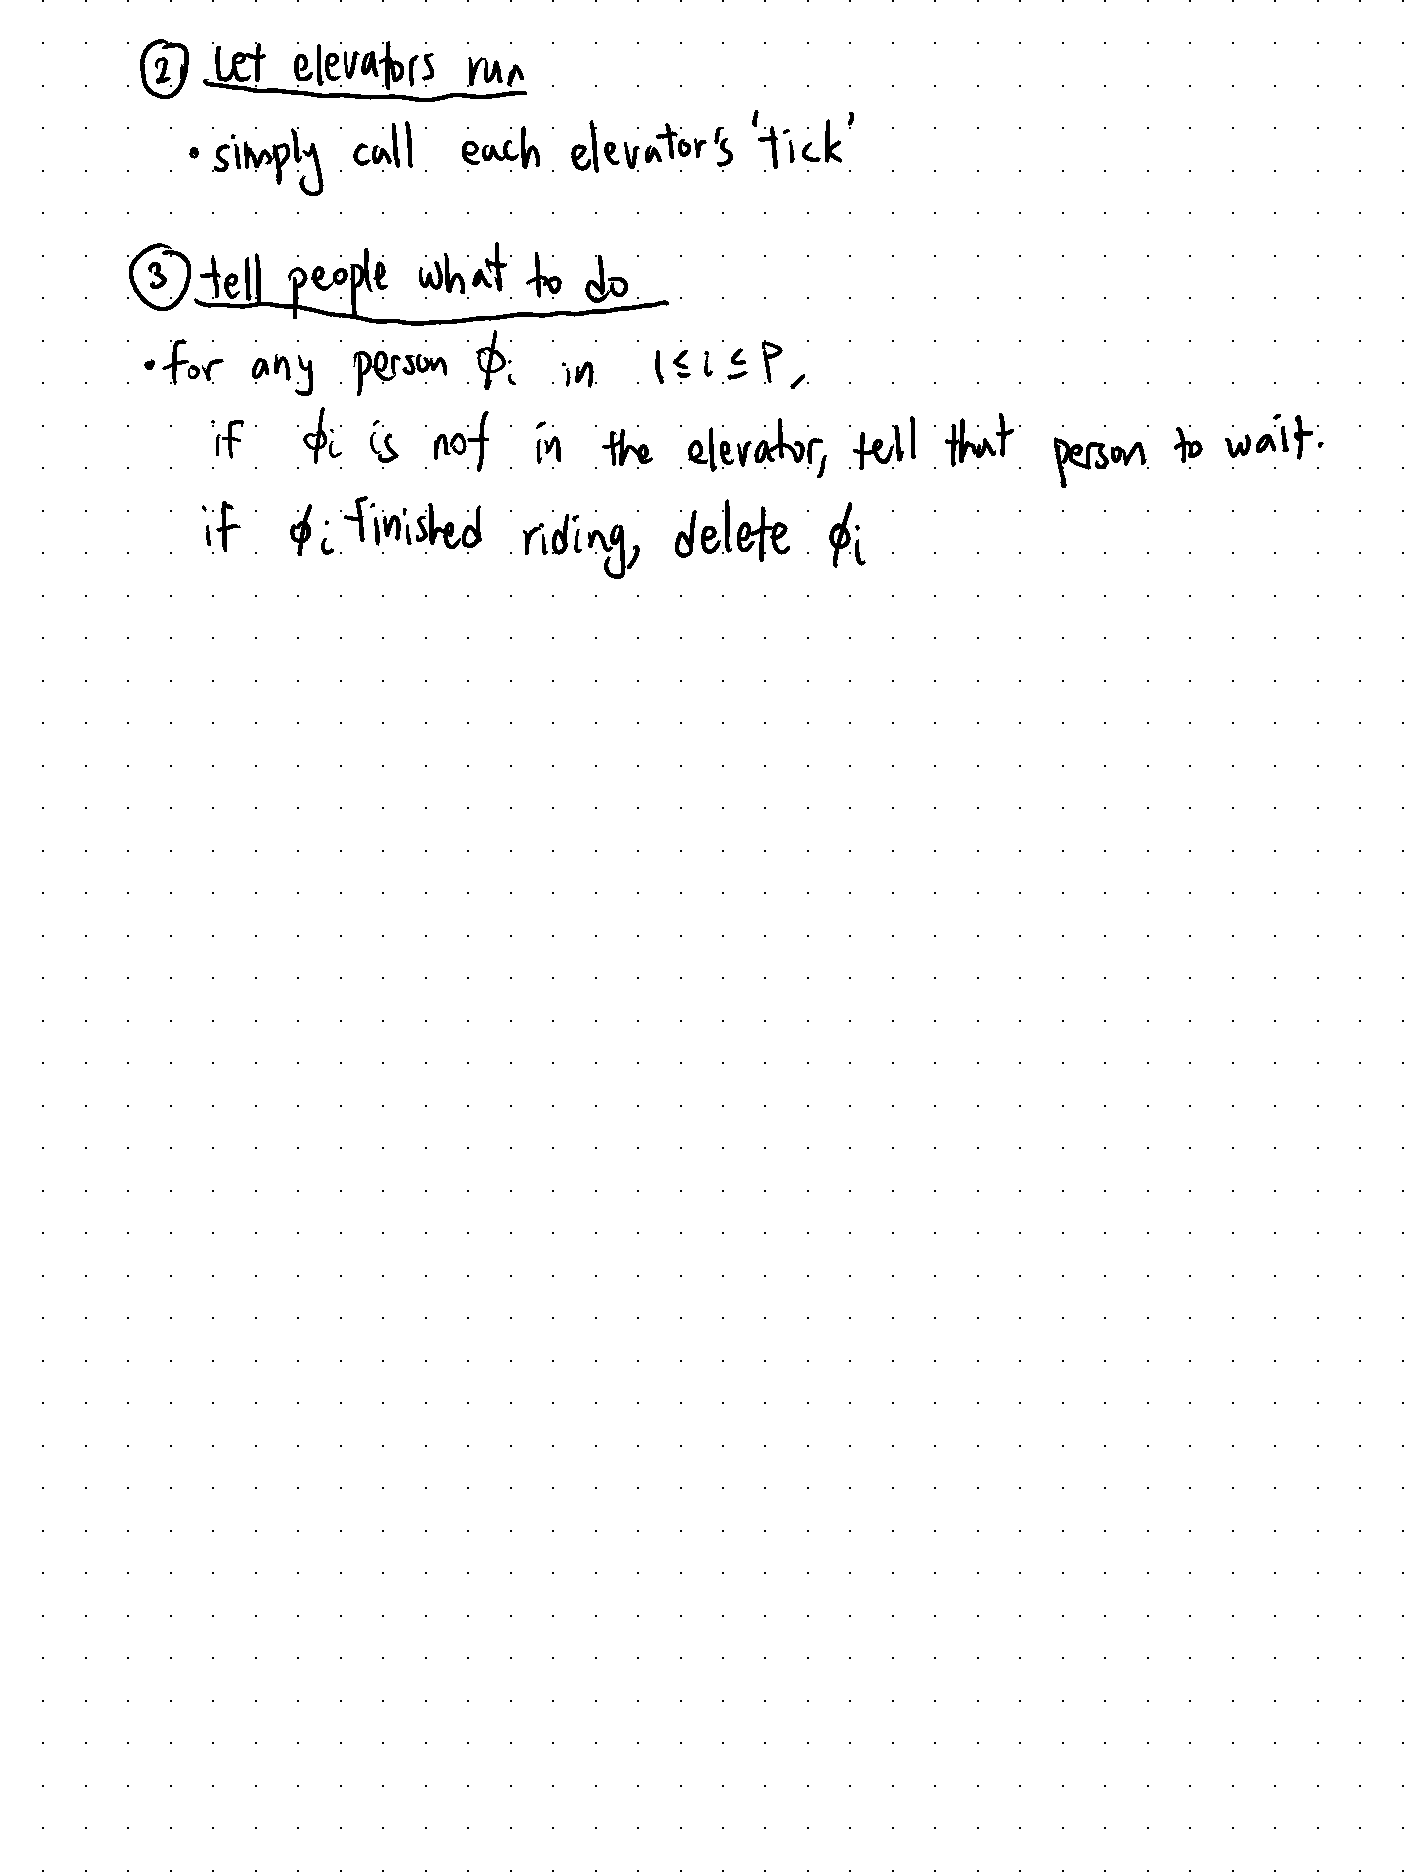 ② Let elevators run
• simply call each elevator's 'tick'
③ tell people what to do
• for any person ϕi in 1≤i≤P,
if ϕi is not in the elevator, tell that person to wait.
if ϕi finished riding, delete ϕi